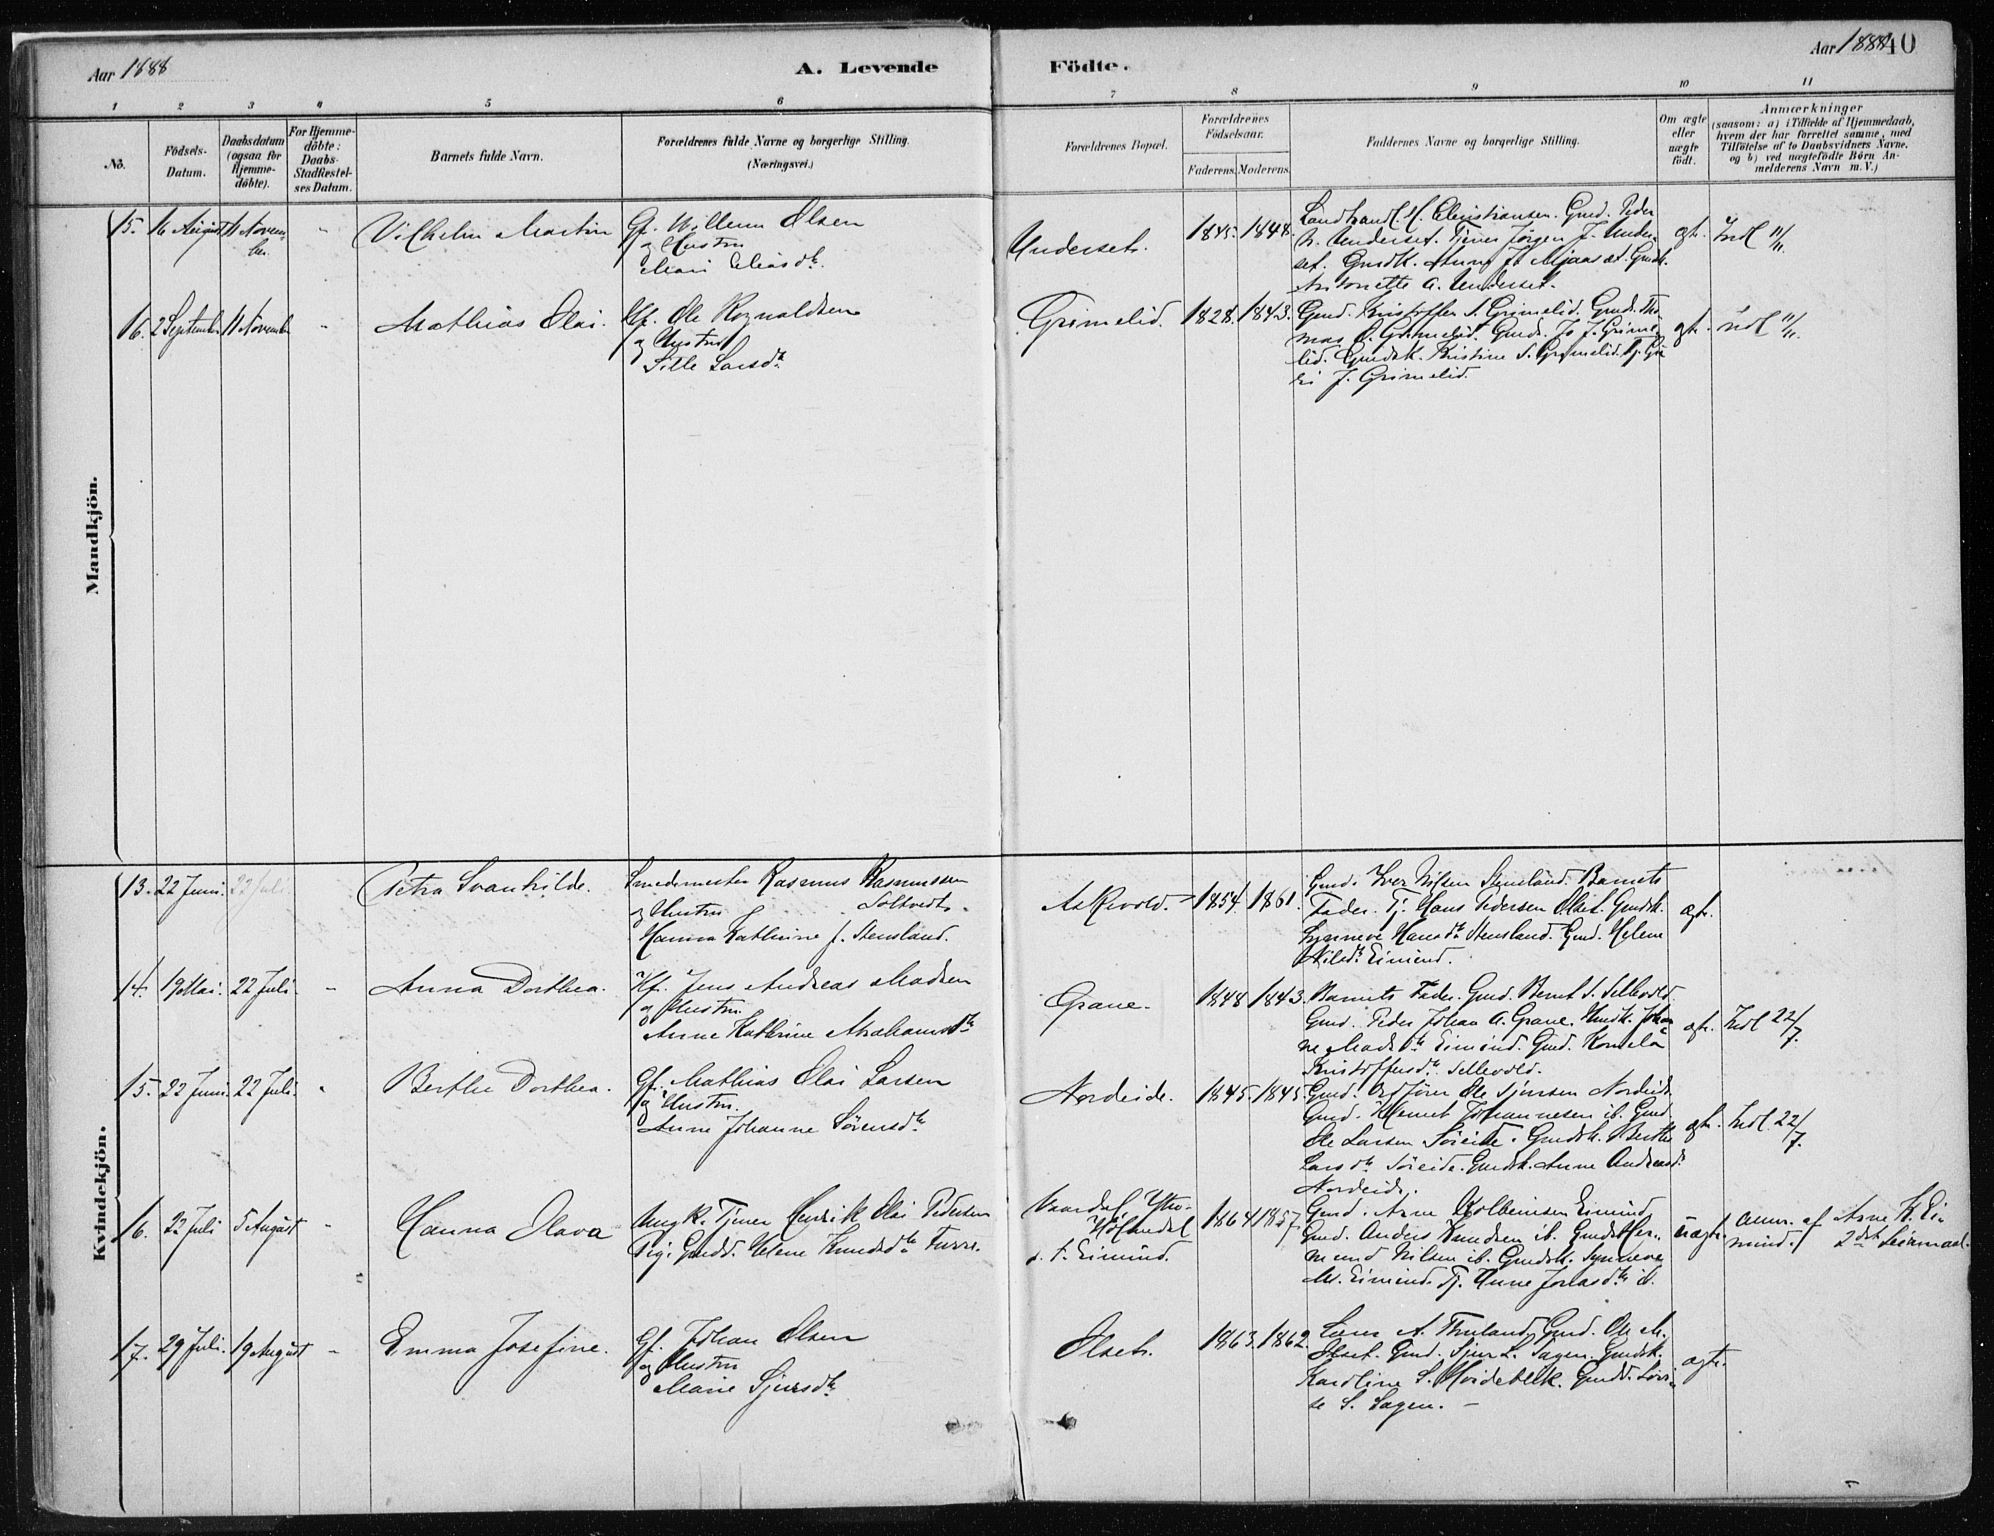 Aar 1888
A. Levende
Födte.
Aar 1888
40
1 2 3 4 5 6 7 8 9 10 11
No.
Födsels-
Datum.
Daabsdatum
(ogsaa for
Hjemme-
döbte).
For Hjemme-
döbte:
Daabs-
Stadfestel-
ses Datum.
Barnets fulde Navn.
Forældrenes fulde Navne og borgerlige Stilling.
(Næringsvei.)
Forældrenes Bopæl.
Forældrenes
Födselsaar.
Faderens.
Moderens.
Faddernes Navne og borgerlige Stilling.
Om ægte
eller
uægte
födt.
Anmærkninger
(saasom: a) i Tilfælde af Hjemmedaab,
hvem der har forrettet samme, med
Tilföielse af to Daabsvidners Navne.
og b) ved uægtefödte Börn An-
melderens Navn m. V.)
Mandkjön.
15. 16 August 11 Novem-
ber
Vilhelm Martin
Gf. Willum Olsen
og Hustru
Mari Eliasdtr.
Underset.
1845. 1848.
Landhandl. H. Christiansen. Gmd. Peder
N. Underset. Tjener Jørgen J. Under-
set. Gmdk.
Antonette A. Underset.
ægte. Indl 11/11.
16. 2 September 11 November
Mathias Olai.
Gf. Ole Rognaldsen
og Hustru
Sille Larsdtr.
Grimelid.
1828. 1843.
Gmd. Kristoffer S. Grimelid. Gmds. Tho-
mas O. Grimelid. Gmds. Jo J. Grime-
lid. Gmdsk. Kristine S. Grimelid. Pj. Gu-
ri J. Grimelid.
ægte. indl 11/11.
Kvindekjön.
13. 22 Juni. 22 Juli.
Petra Svanhilde.
Smedemester Rasmus Rasmussen
Soltvedt
og Hustru
Hanna Kathrine f. Stensland.
Askvold.
1854. 1861.
Gmd. Iver Nilsen Stensland. Barnets
Fader. Tj. Hans Pedersen Olset. Gmdsk.
Synneve Hansdtr Stensland. Gmd. Helene
Nilsdtr Eimind.
ægte.
14. 19 Mai. 22 Juli.
Anna Dorthea.
Hf. Jens Andreas Madsen
og Hustru
Anne Kathrine Abrahamsdtr
Grane.
1848 1843.
Barnets Fader. Gmd. Bernt S. Sellevold.
Gmd. Peder Johan A. Grane. Hmdk. Johan-
ne Madsdtr Eimind. Gmd. Kornelia
Kristoffersdtr Sellevold.
ægte. Indl 22/7.
15. 22 Juni. 22 Juli.
Berthe Dorthea.
Gf. Mathias Olai Larsen
og Hustru.
Anne Johanne Sørensdtr
Nordeide.
1845. 1845.
Gmd. Ordfører Ole Sjursen Nordeide.
Gmd. Klemet Johannesen ib. Gmd.
Ole Larsen Søreide. Gmdsk. Berthe
Larsdtr Søreide. Gmdsk. Anne Andreasd.
Nordeide.
ægte. Indl 22/7.
16. 23 Juli 5 August
Hanna Olava
Ungk. Tjener Henrik Olai Pedersen
Pig. Gmdd. Helene Knudsdtr Furre.
1864 1857.
Gmd. Arne Kolbeinsen Eimind,
Gmd. Anders Knudsen ib. Gmds. Her-
mund Nilsen ib. Gmdsk. Synneve
M. Eimind. Tj. Anne Jonasdtr ib.
uægte. anm. af Arne K. Ei-
mind. 2det Leiermaal.
17. 29 Juli. 19 August
Emma Josefine.
Gf. Johan Olsen
og Hustru
Marie Sjursdtr
Olset.
1863. 1862.
A. Gmd. Ole M.
Olset. Gmd. Sjur L. Sagen. Gmdsk.
Karoline S. Gmdd. Lovi-
se S. Sagen.
ægte.